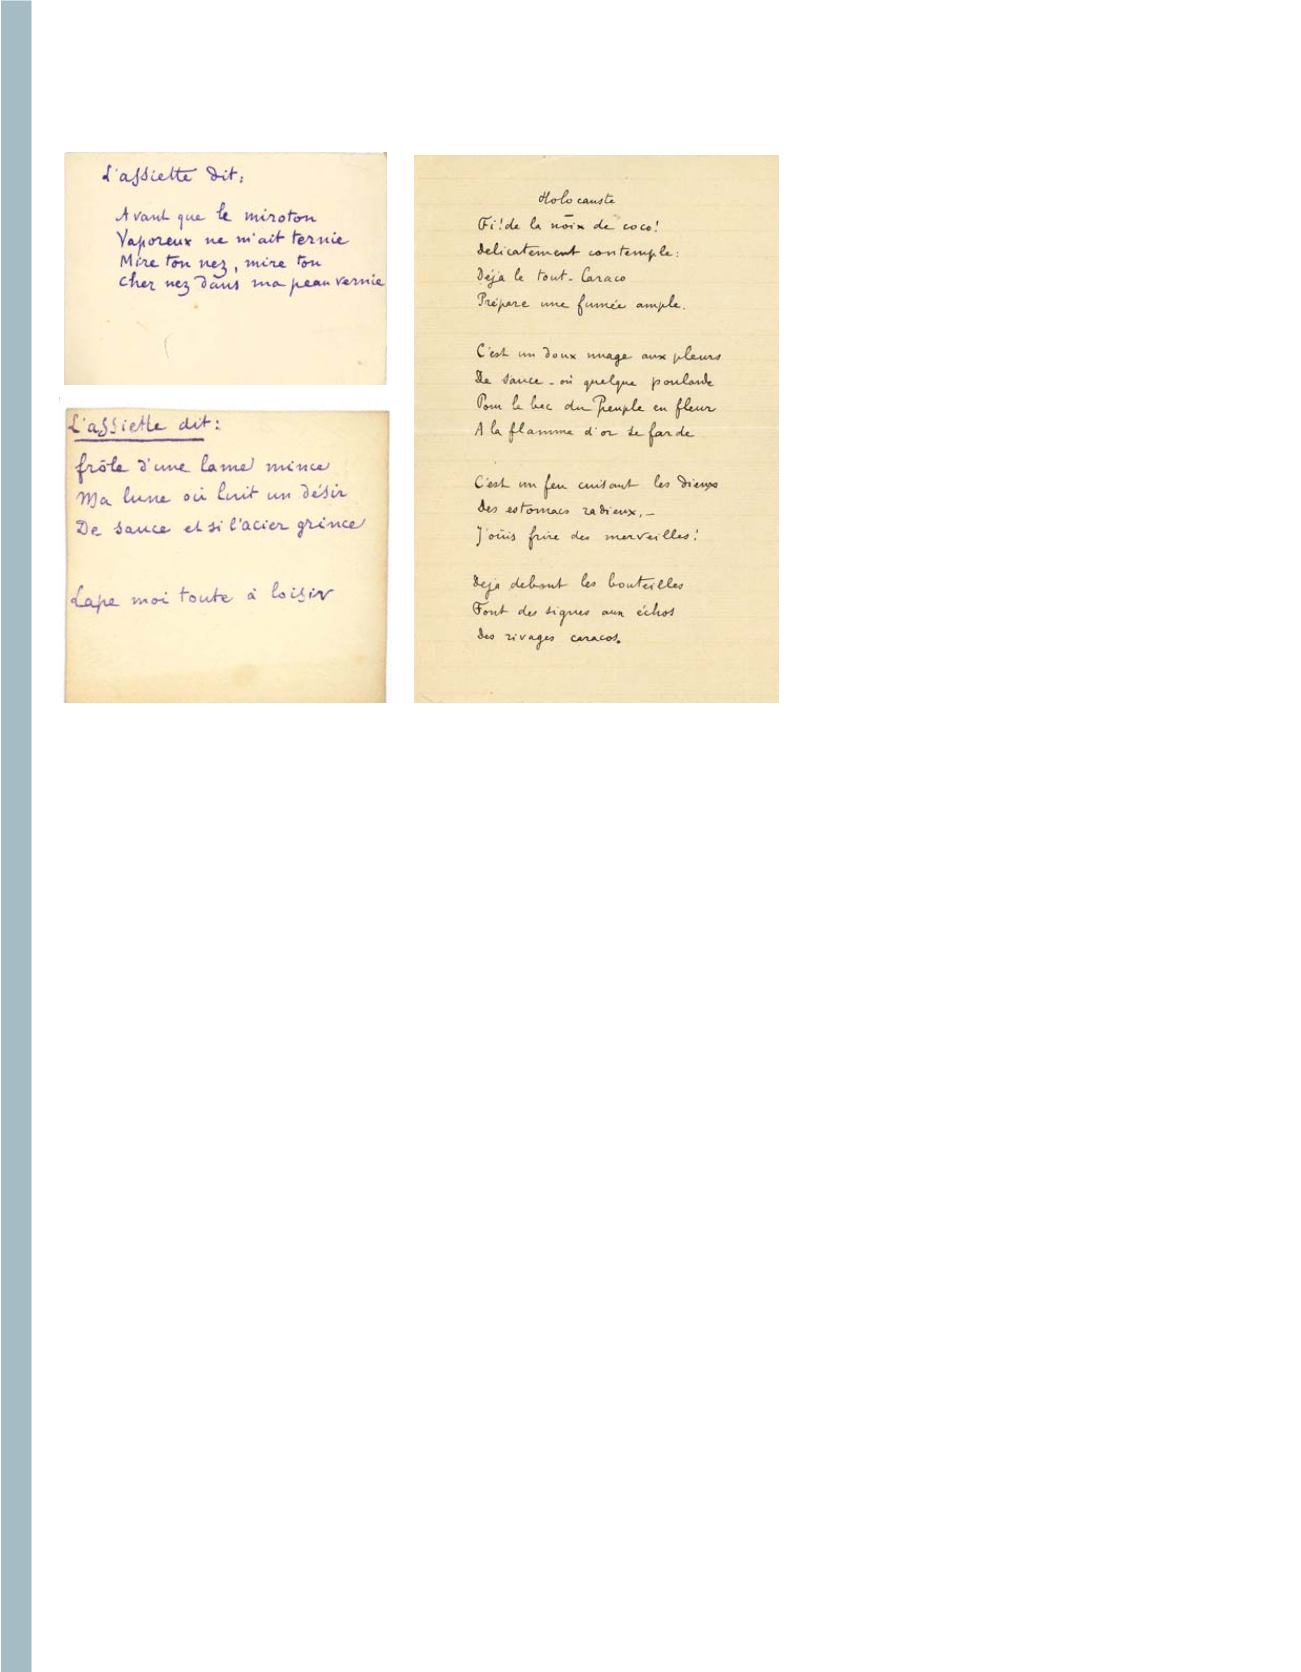 L'assiette dit:
Avant que le miroton
Vaporeux ne m'ait ternie
Mire ton nez, mire ton
cher nez dans ma peau vernie
L'assiette dit:
frôle d'une lame mince
Ma lune où luit un désir
De sauce et si l'acier grince
Lape moi toute à loisir
Holocauste
Fi! de la noix de coco!
délicatement contemple:
Déjà le tout-Caraco
Prépare une fumée ample.
C'est un doux nuage aux pleurs
De sauce - où quelque poularde
Pour le bec du Peuple en fleur
A la flamme d'or se farde
C'est un feu cuisant les dieux
Des estomacs radieux, –
J'ouïs frire des merveilles!
Déja debout les bouteilles
Font des signes aux échos
Des rivages caracos.